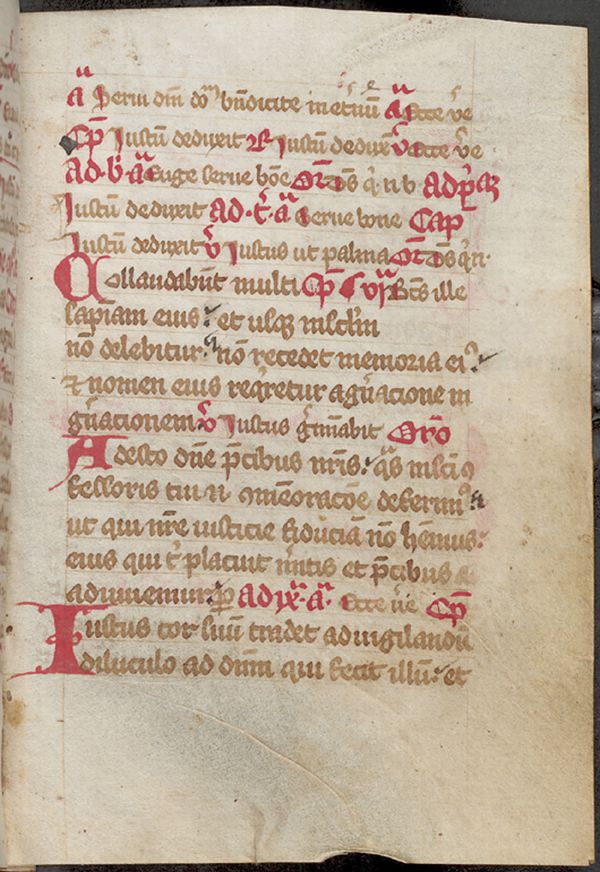 a Serui dnī dōm bn̄dicite in etnū a Ecce ve
Cp Iustū deduxit R Iustū deduxͥ v Ecce v̄e
ad · b · a Euge serue bōe Or̄ Ds q̄ n b ad pͥaꝫ
Iustū deduxit ad · t̄ · a Serue bone Cap
Iustū deduxit v Iustus ut palma Or̄ Ds q̄ n·
Collaudabūt multi Cp S vi a Bt̄s ille
sapiam eius et usqꝫ in sctm
nō delebitur nō recedet memoria eiꝰ
⁊ nomen eius reqͥretur a gn̄acione in
gn̄acionem v Iustus gͥminabit Or̄o
Adesto dn̄e p̄cibus nr̄is q̄s in sci ꝯ
fessoris tui n ꝯmēoracōe deferimꝰ
ut qui nr̄e iusticie fiduciā nō hēmus
eius qui tͥ placuit mͥtis et p̄cibus
adiuuemur p ad ix · a · Ecce v̄e Cp
Iustus cor suū tradet ad uigilandū
diluculo ad dnm qui fecit illū et